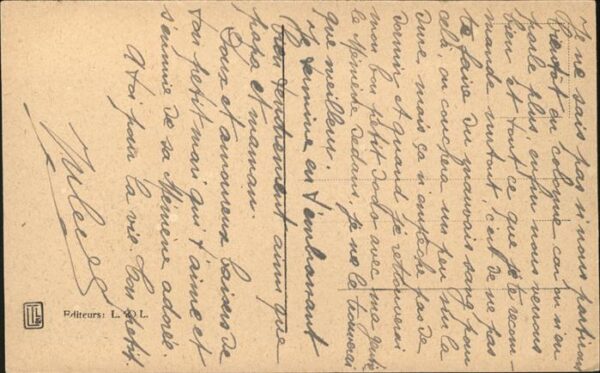 Je ne sais pas si nous partirons
bientôt en Cologne car on n'en
parle plus enfin nous verrons
bien et tout ce que je te recom-
mande surtout, c'est de ne pas
te faire du mauvais sang pour
cela, on couchera un peu sur la
dure, mais ça n'empêche pas de
dormir et quand je retrouverai
mon bon petit dodo avec ma petite
Mémène dedans, je ne le trouverai
que meilleur.
Je termine en t'embrassant
bien tendrement ainsi que
papa et maman.
Doux et amoureux baisers de
ton petit mari qui t'aime et
s'ennuie de sa Mémène adorée.
A toi pour la vie ton petit
Jules
Editeurs: L. O L.